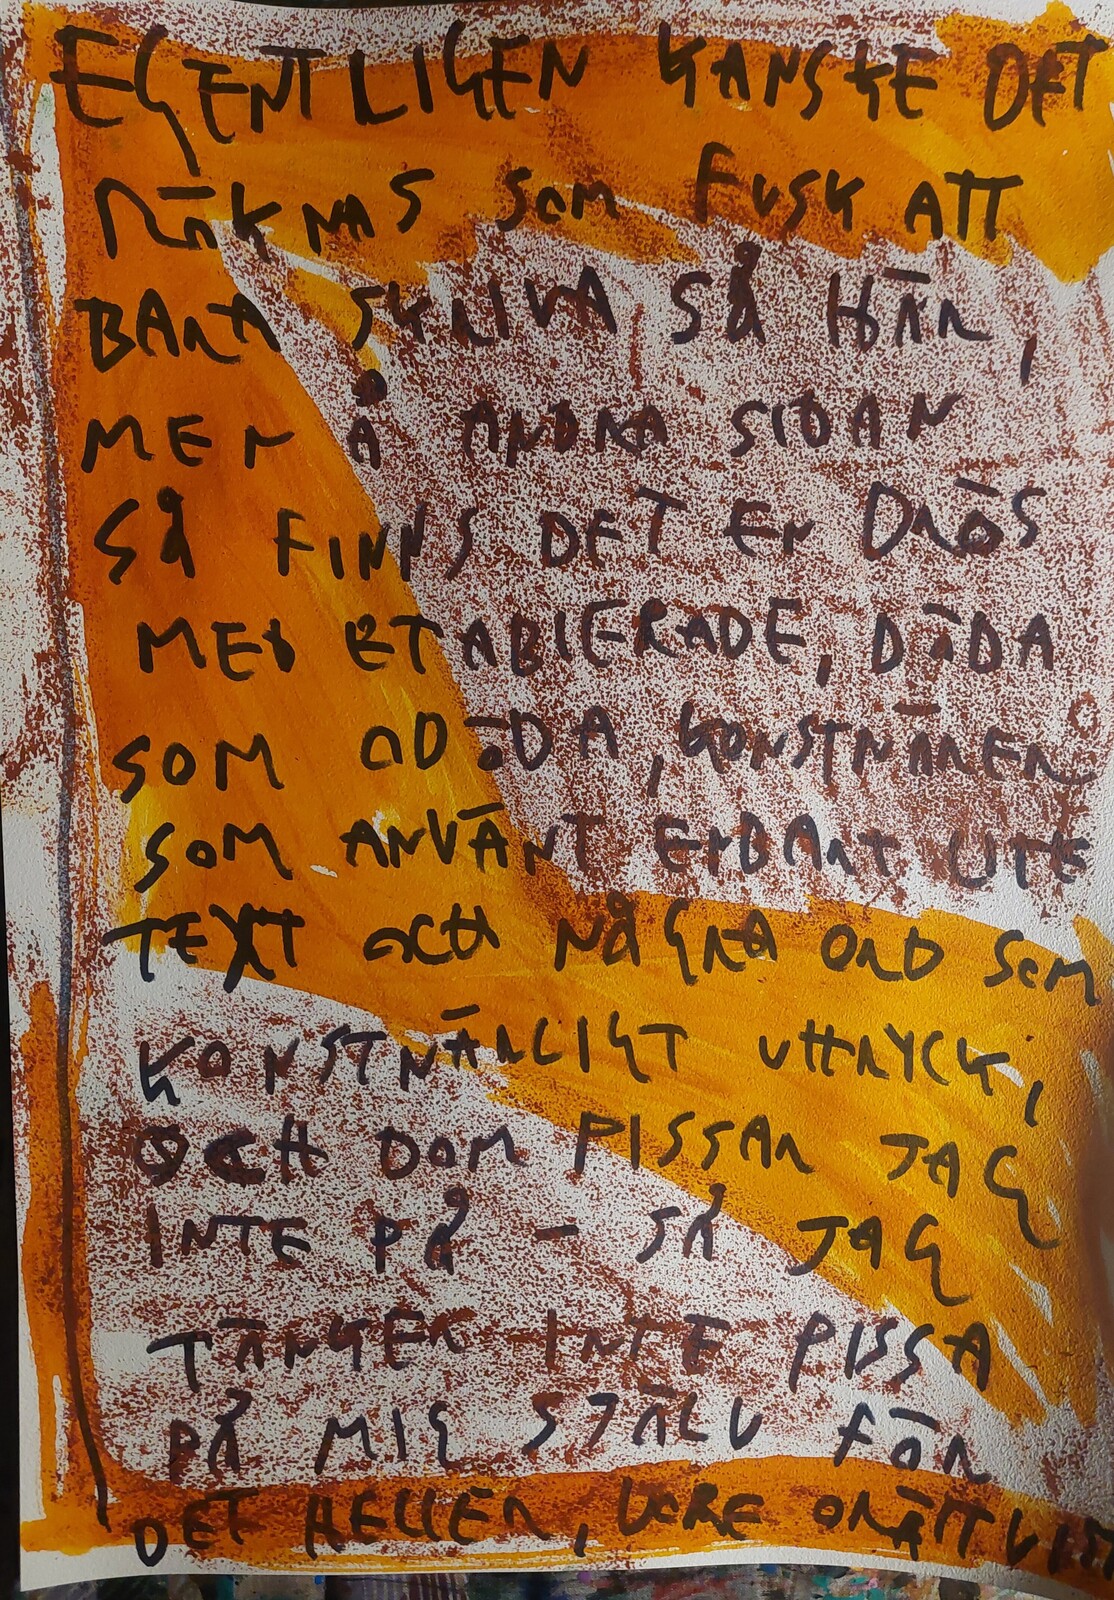 EGENTLIGEN KANSKE DET
RÄKNAS SOM FUSK ATT
BARA SKRIVA SÅ HÄR,
MEN Å ANDRA SIDAN
SÅ FINNS DET EN DRÖS
MED ETABLERADE, DÖDA
SOM ODÖDA, KONSTNÄRER
SOM ANVÄNT ENDART UTE
TEXT OCH NÅGRA ORD SOM
KONSTNÄRLIGT UTTRYCK,
OCH DOM PISSAR JAG
INTE PÅ - SÅ JAG
TÄNKER INTE PISSA
PÅ MIG SJÄLV FÖR
DET HELLER, VORE ORÄTTVIST